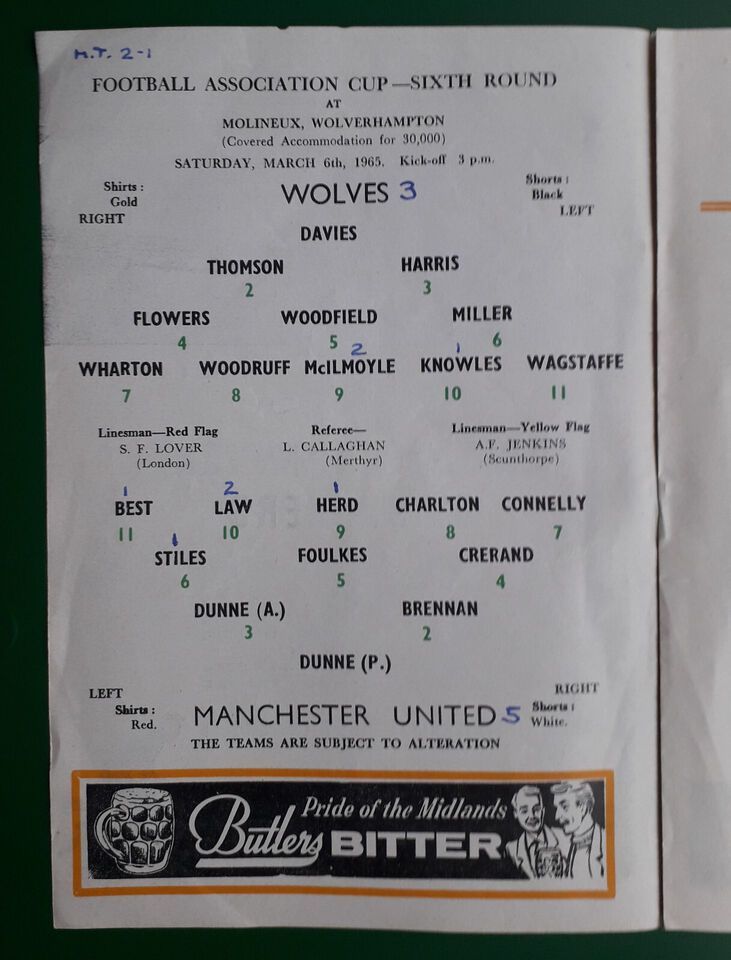 H.T. 2-1
FOOTBALL ASSOCIATION CUP—SIXTH ROUND
AT
MOLINEUX, WOLVERHAMPTON
(Covered Accommodation for 30,000)
SATURDAY, MARCH 6th, 1965. Kick-off 3 p.m.
Shirts :
Gold
RIGHT
WOLVES 3
Shorts :
Black
LEFT
DAVIES
THOMSON HARRIS
2 3
FLOWERS WOODFIELD MILLER
4 5 6
2 1
WHARTON WOODRUFF McILMOYLE KNOWLES WAGSTAFFE
7 8 9 10 11
Linesman—Red Flag
S. F. LOVER
(London)
Referee—
L. CALLAGHAN
(Merthyr)
Linesman—Yellow Flag
A.F. JENKINS
(Scunthorpe)
1 2 1
BEST LAW HERD CHARLTON CONNELLY
11 10 9 8 7
1
STILES FOULKES CRERAND
6 5 4
DUNNE (A.) BRENNAN
3 2
DUNNE (P.)
LEFT
Shirts :
Red.
MANCHESTER UNITED 5
RIGHT
Shorts :
White.
THE TEAMS ARE SUBJECT TO ALTERATION
Pride of the Midlands
Butlers BITTER